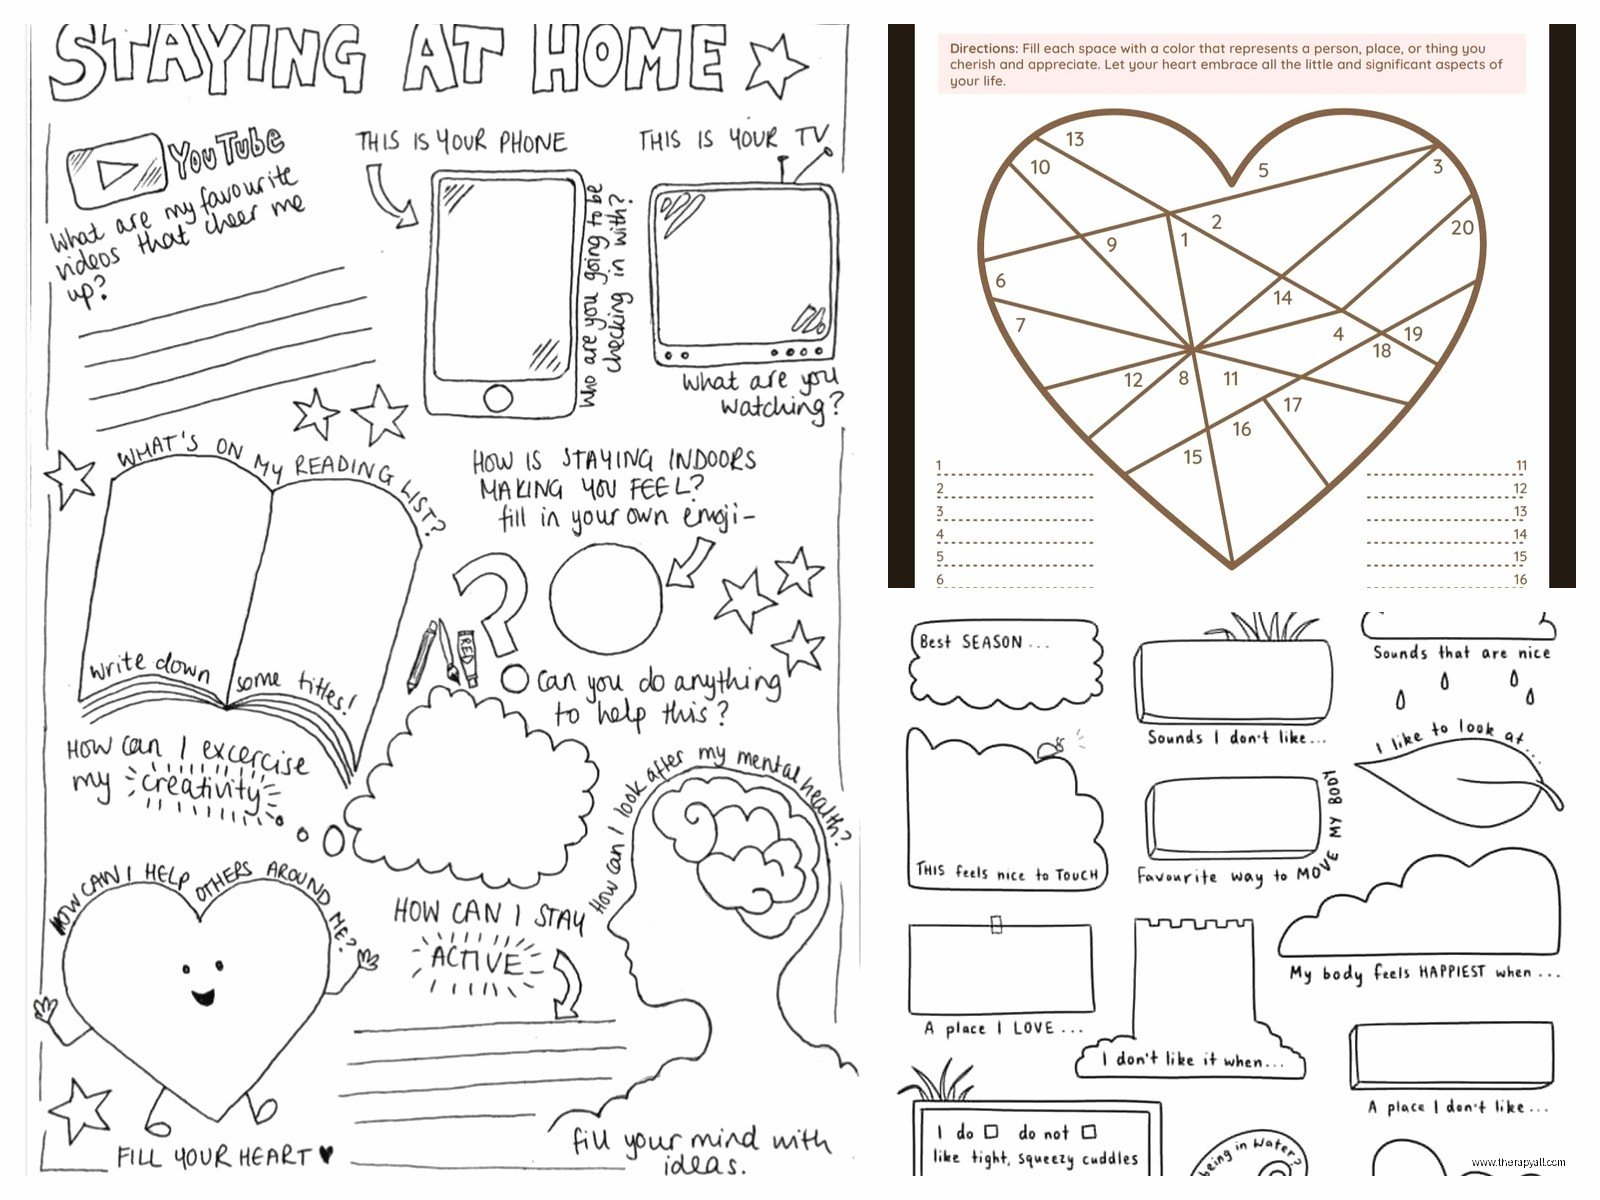 STAYING AT HOME
YouTube
What are my favourite
videos that cheer me
up?
THIS IS YOUR PHONE
who are you going to be
checking in with?
THIS IS YOUR TV
What are you
watching?
WHAT'S ON MY READING LIST?
write down some titles!
HOW IS STAYING INDOORS
MAKING YOU FEEL?
fill in your own emoji-
RED
Can you do anything
to help this?
HOW can I excercise
my creativity
How can I look after my mental health?
HOW CAN I HELP OTHERS AROUND ME?
FILL YOUR HEART
HOW CAN I STAY
ACTIVE
fill your mind with
ideas.
Directions: Fill each space with a color that represents a person, place, or thing you
cherish and appreciate. Let your heart embrace all the little and significant aspects of
your life.
13
10
5
3
2
1
9
20
6
7
14
4
19
18
12
8
11
17
16
15
1
2
3
4
5
6
11
12
13
14
15
16
Best SEASON ...
Sounds I don't like...
Sounds that are nice
I like to look at...
THIS feels nice to TOUCH
Favourite way to MOVE MY BODY
My body feels HAPPIEST when ...
A place I LOVE ...
I don't like it when...
A place I don't like...
I do do not
like tight, squeezy cuddles
being in water?
www.therapyall.com